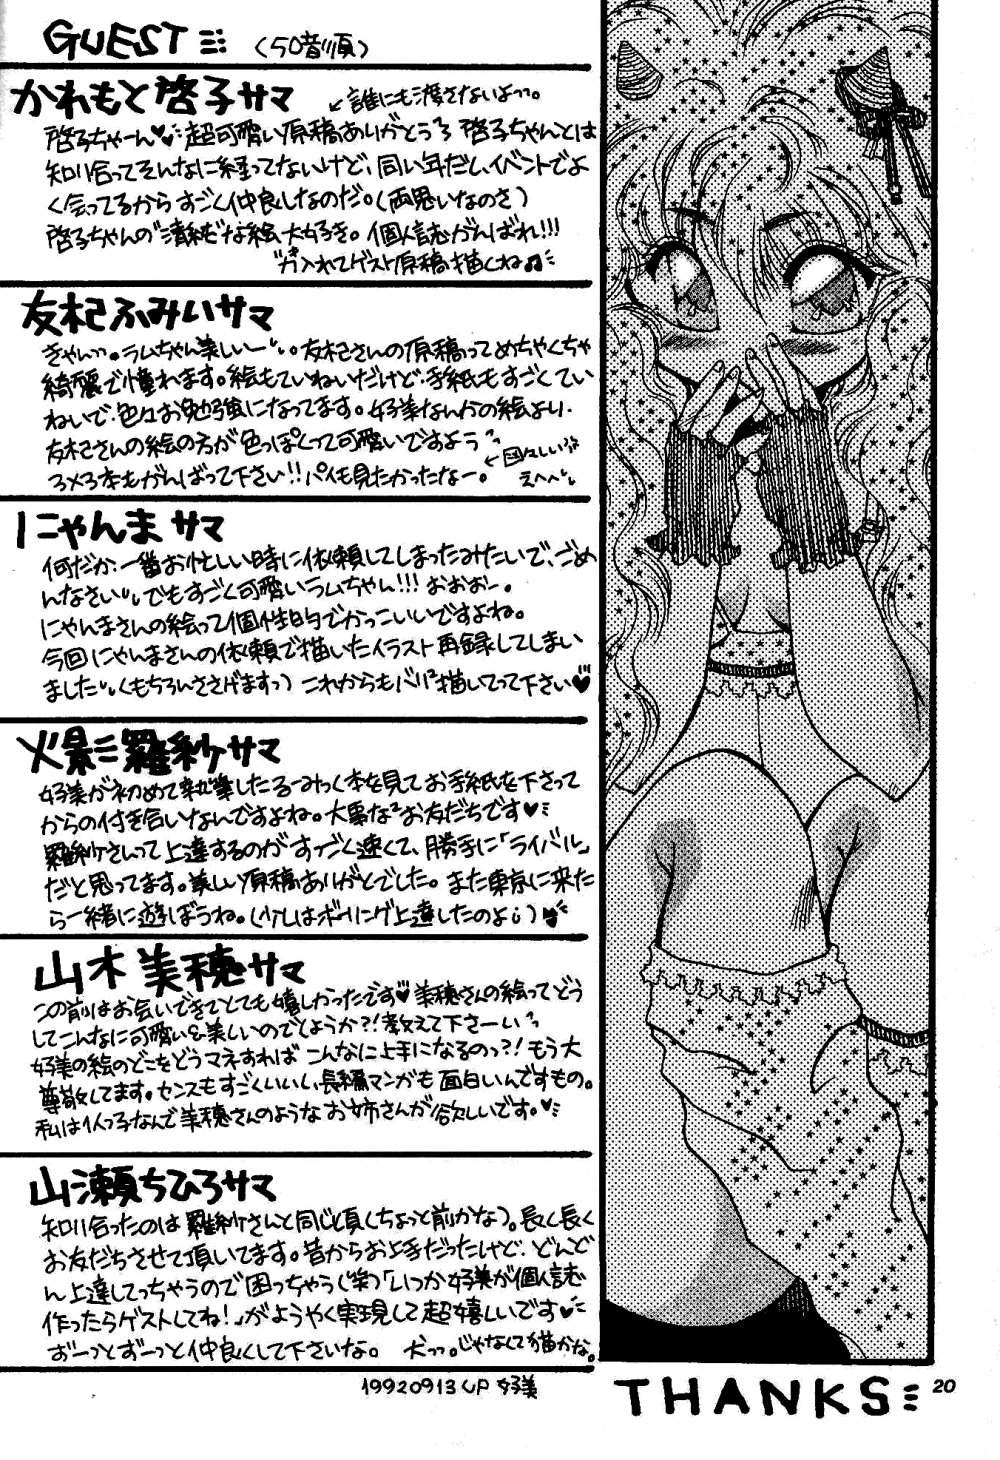 GUEST (50音順)
かわもと啓子サマ ←誰にも渡さないよっ。
啓子ちゃーん♥超可愛い原稿ありがとう 啓子ちゃんとは
知り合ってそんなに経ってないけど、同い年だし、イベントでよ
く会ってるからすごく仲良しなのだ。(両思いなのさ)
啓子ちゃんの"清純"な絵大好き。個人誌がんばれ!!!
気が入れてゲスト原稿描くね♫
友杞ふみいサマ
きゃんっ。ラムちゃん美しいー。友杞さんの原稿ってめちゃくちゃ
綺麗で憧れます。絵もていねいだけど、手紙もすごくてい
ねいで、色々お勉強になってます。好美なんかの絵より、
友杞さんの絵の方が色っぽくって可愛いですよう
3×3本もがんばって下さい!!パイも見たかったなー。
←図々しい
えへへ
にゃんまサマ
何だか、一番お忙しい時に依頼してしまったみたいで、ごめ
んなさい でもすごく可愛いラムちゃん!!!おおおー。
にゃんまさんの絵って個性的でかっこいいですよね。
今回にゃんまさんの依頼で描いたイラスト再録してしまい
ました(もちろんささげますっ)これからもバリバリ描いてって下さい♥
火影羅紗サマ
好美が初めて執筆したるーみっく本を見てお手紙を下さって
からの付き合いなんですよね。大事なお友だちです♥
羅紗さんって上達するのがすっごく速くて、勝手に「ライバル」
だと思ってます。美しい原稿ありがとでした。また東京に来た
ら一緒に遊ぼうね。(少しはボーリング上達したのよ)
山木美穂サマ
この前はお会いできてとても嬉しかったです♥美穂さんの絵ってどう
してこんなに可愛い&美しいのでしょうか?!教えて下さーい
好美の絵のどこをどうマネすればこんなに上手になるのっ?!もう大
尊敬してます。センスもすごくいいし、長編マンガも面白いんですもの。
私は1人っ子なんで美穂さんのようなお姉さんが欲しいです。♥
山瀬ちひろサマ
知り合ったのは羅紗さんと同じ頃(ちょっと前かな)。長く長く
お友だちさせて頂いてます。昔からお上手だったけど、どんど
ん上達してっちゃうので困っちゃう(笑)「いつか好美が個人誌
作ったらゲストしてね!」がようやく実現して超嬉しいです♥
ずーっとずーっと仲良くして下さいな。 犬っっ。じゃなくて猫かな。
19920913 UP 好美
THANKS
20